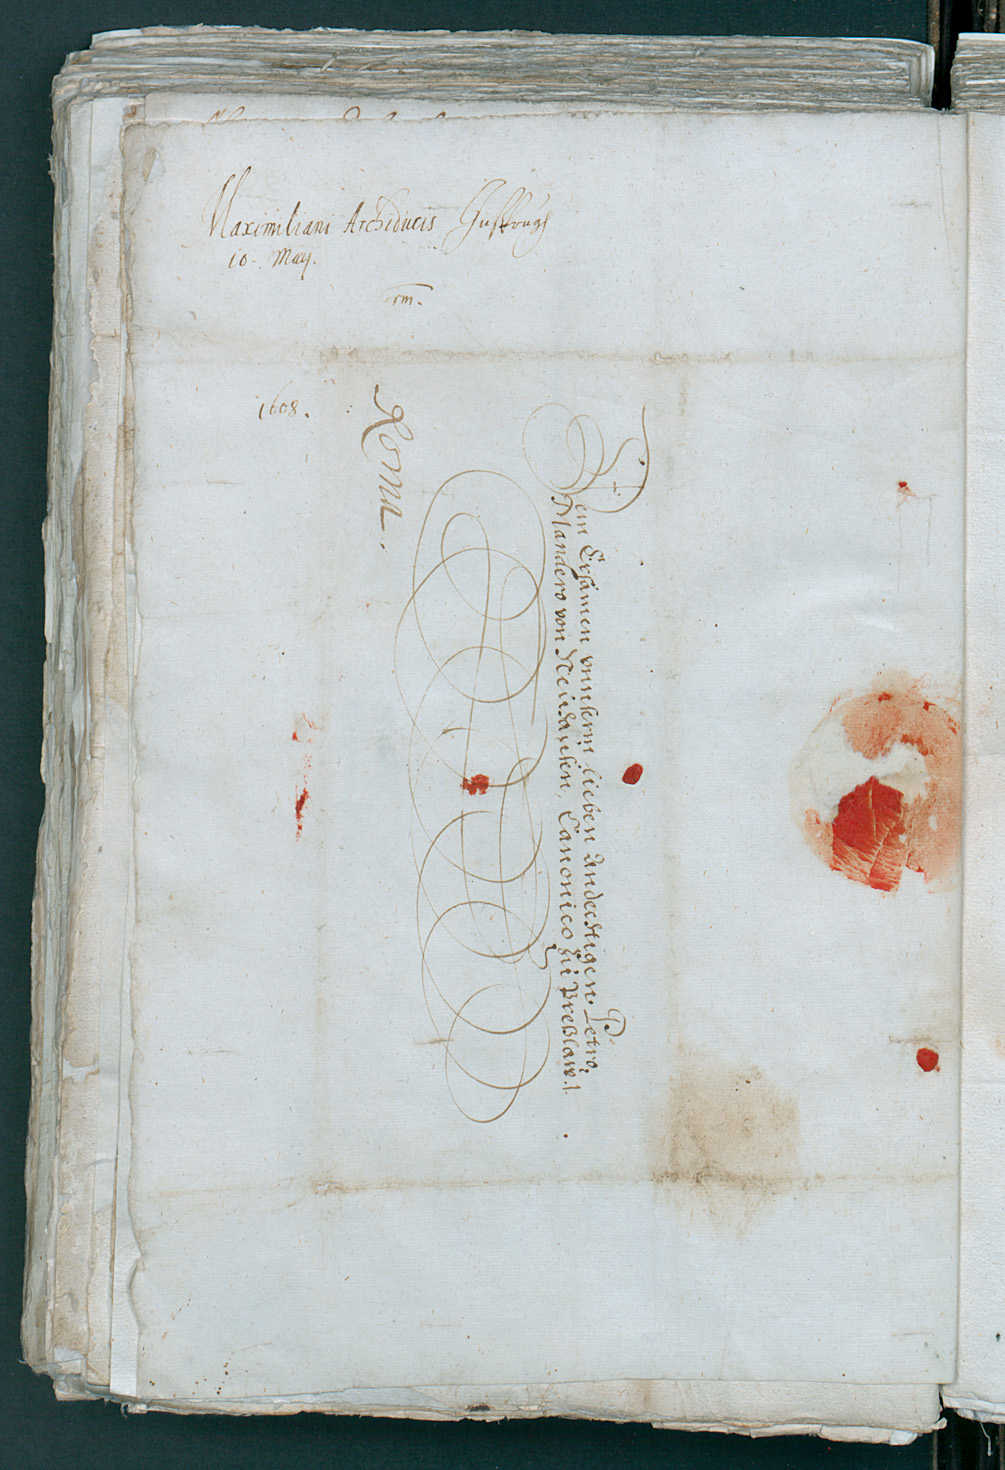 Maximiliani Archiducis Insprugh
10. May.
rm.
1608.
Dem Ersamen unnserm lieben Andechtigen Petro
Mandero von Neidanken, Canonico zu Preßlaw.
Roma.